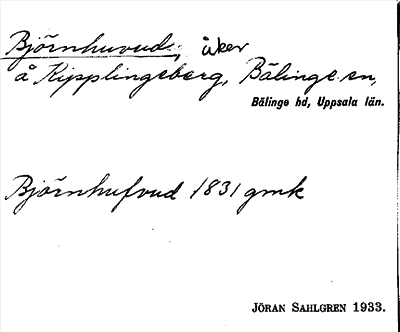 Björnhuvud, åker
å Kipplingeberg, Bälinge sn,
Bälinge hd, Uppsala län.
Björnhufvud 1831 gmk
JÖRAN SAHLGREN 1933.